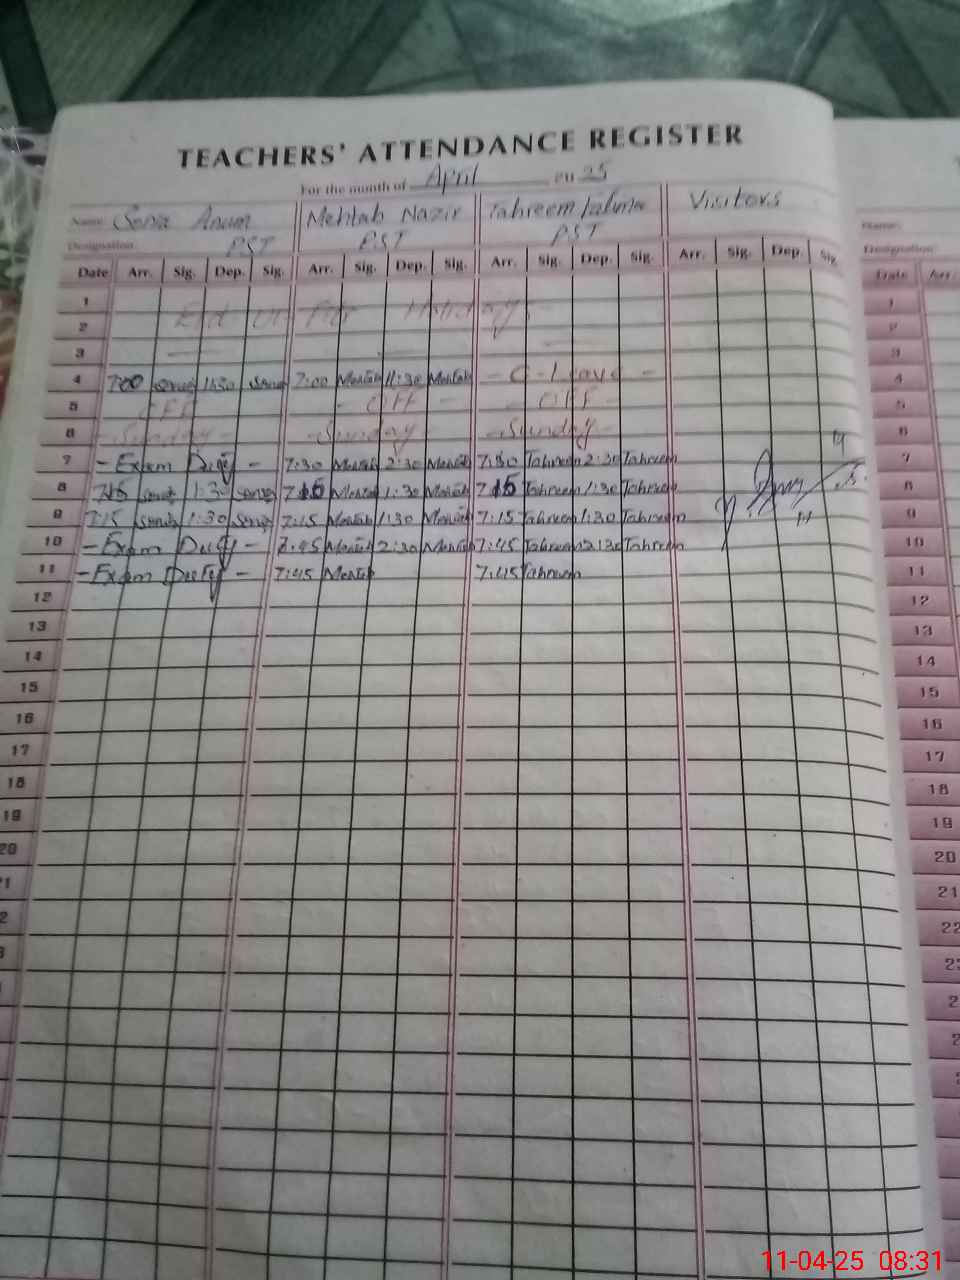 TEACHERS' ATTENDANCE REGISTER
For the month of April 2025
Name Sonia Anum Mehtab Nazir Tahreem Fatima Visitors
Designation PST PST PST
Date Arr. Sig. Dep. Sig. Arr. Sig. Dep. Sig. Arr. Sig. Dep. Sig. Arr. Sig. Dep. Sig.
1
2 Eid Ul Fitr Holidays
3
4 7:00 Sonia 11:30 Sonia 7:00 Mehtab 11:30 Mehtab - C-Leave -
5 OFF - OFF - - OFF -
6 - Sunday - - Sunday - - Sunday -
7 - Exam Duty - 7:30 Mehtab 2:30 Mehtab 7:30 Tahreem 2:30 Tahreem
8 7:15 Sonia 1:30 Sonia 7:15 Mehtab 1:30 Mehtab 7:15 Tahreem 1:30 Tahreem
9 7:15 Sonia 1:30 Sonia 7:15 Mehtab 1:30 Mehtab 7:15 Tahreem 1:30 Tahreem
10 - Exam Duty - 7:45 Mehtab 2:30 Mehtab 7:45 Tahreem 2:30 Tahreem
11 - Exam Duty - 7:45 Mehtab 7:45 Tahreem
12
13
14
15
16
17
18
19
20
Name:
Designation
Date Arr.
1
2
3
4
5
6
7
8
9
10
11
12
13
14
15
16
17
18
19
20
21
22
11-04-25 08:31